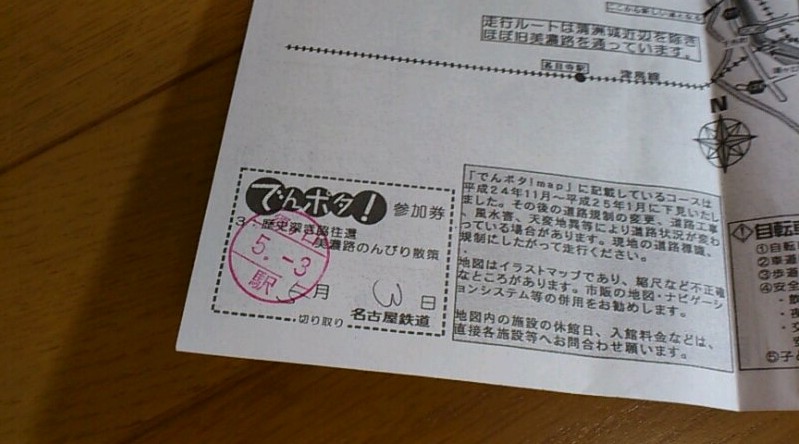 走行ルートは清洲城近辺を除き
ほぼ旧美濃路を通っています。
甚目寺駅
津島線
N
でんポタ！ 参加券
3．歴史深き脇往還
美濃路のんびり散策
5.-3
駅
5月 3日
切り取り 名古屋鉄道
「でんポタ!map」に記載しているコースは
平成24年11月～平成25年1月に下見いたし
ました。その後の道路規制の変更、道路工事
、風水害、天変地異等により道路状況が変わ
っている場合があります。現地の道路標識、
規制にしたがって走行ください。
地図はイラストマップであり、縮尺など不正確
なところがあります。市販の地図・ナビゲーシ
ョンシステム等の併用をお勧めします。
地図内の施設の休館日、入館料金などは、
直接各施設等へお問合わせ願います。
自転車
①自転
②車道
③歩道
④安全
⑤子ど